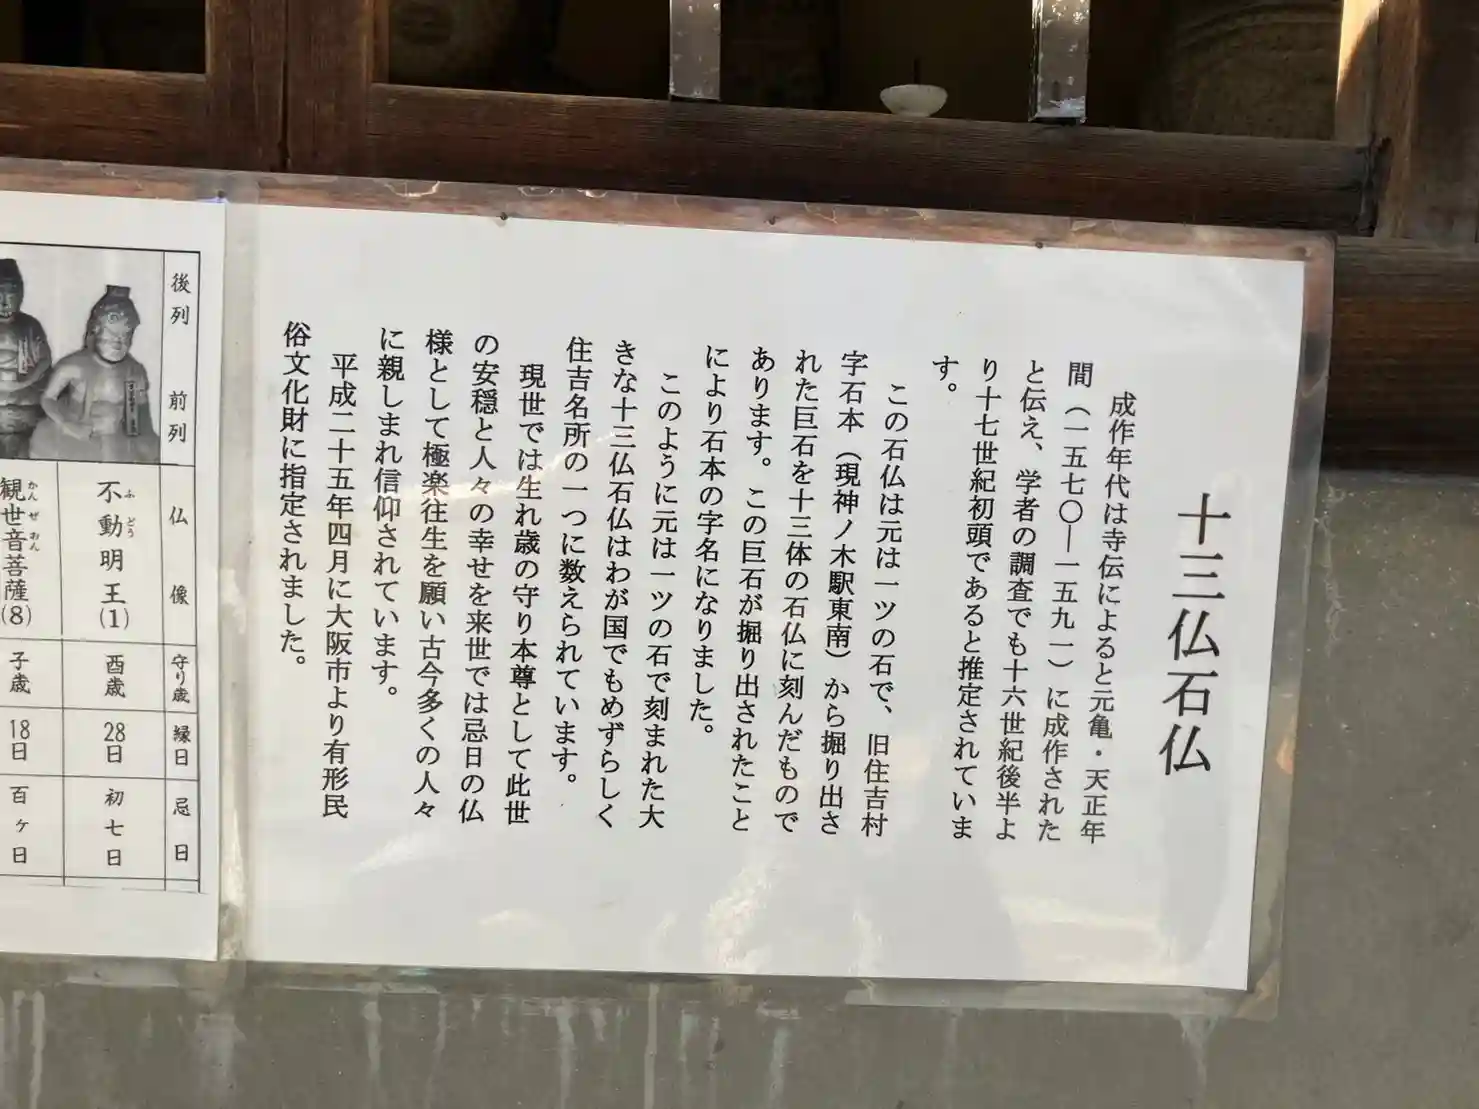 十三仏石仏
成作年代は寺伝によると元亀・天正年
間（一五七〇―一五九一）に成作された
と伝え、学者の調査でも十六世紀後半よ
り十七世紀初頭であると推定されていま
す。
この石仏は元は一ツの石で、旧住吉村
字石本（現神ノ木駅東南）から掘り出さ
れた巨石を十三体の石仏に刻んだもので
あります。この巨石が掘り出されたこと
により石本の字名になりました。
このように元は一ツの石で刻まれた大
きな十三仏石仏はわが国でもめずらしく
住吉名所の一つに数えられています。
現世では生れ歳の守り本尊として此世
の安穏と人々の幸せを来世では忌日の仏
様として極楽往生を願い古今多くの人々
に親しまれ信仰されています。
平成二十五年四月に大阪市より有形民
俗文化財に指定されました。
後列 前列
仏像
守り歳
縁日
忌日
不動明王(1)
ふどう
酉歳
28日
初七日
観世音菩薩(8)
かんぜおん
子歳
18日
百ケ日